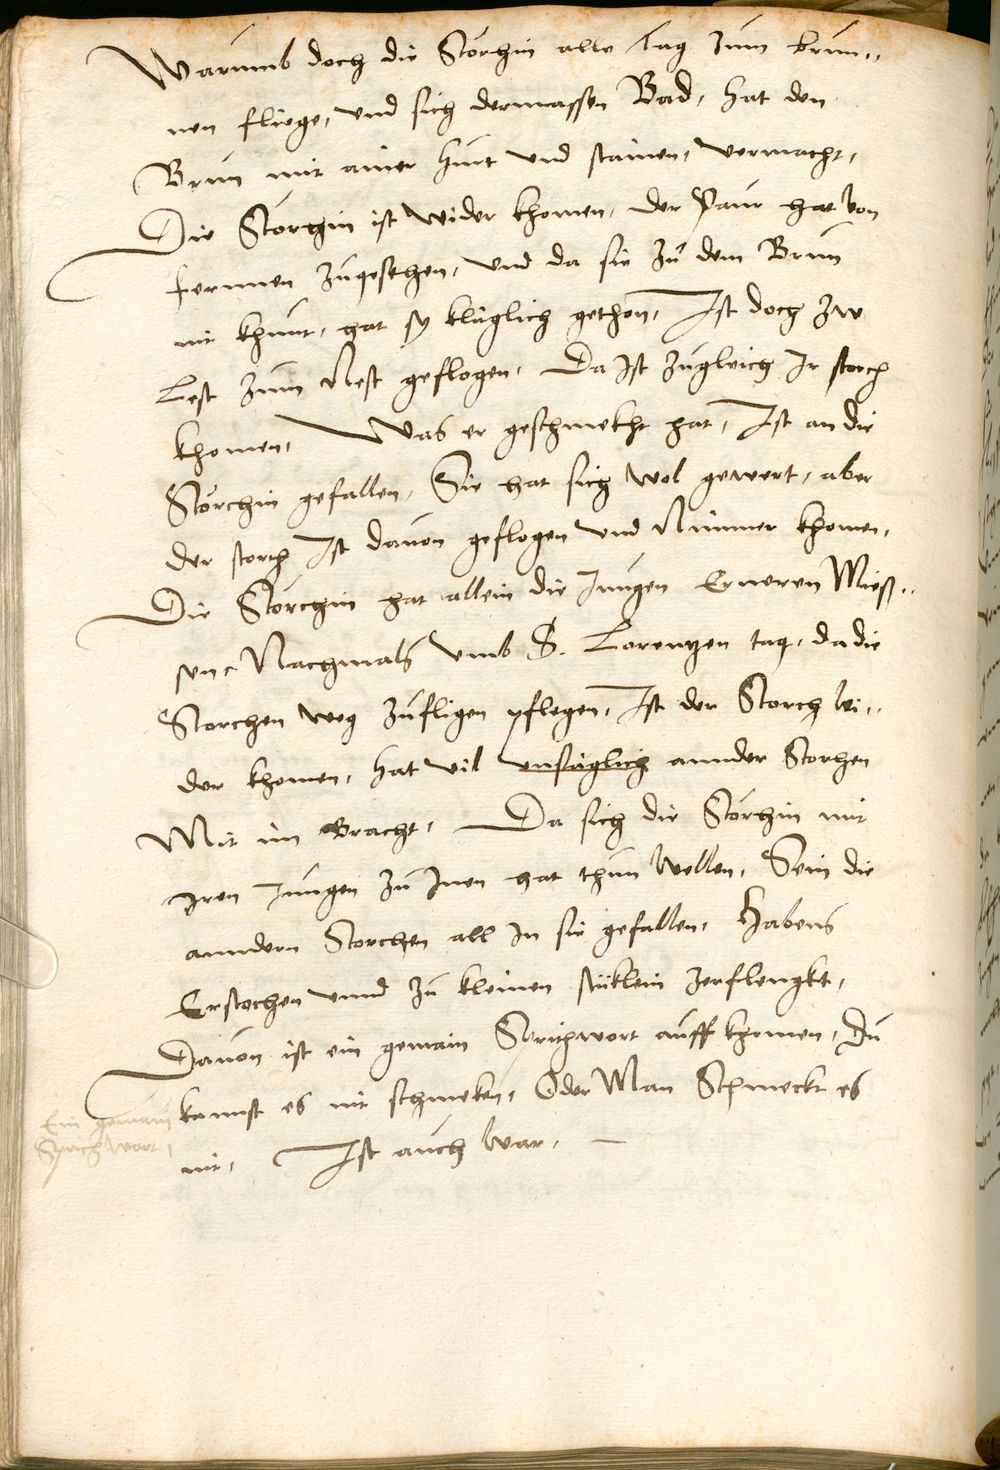 Warumb doch die Störchin alle tag zum brun„
nen fliege, vnd sich dermassen Bad, hat den
Brun mit ainer hurt vnd stainen, vermacht,
Die Störchin ist wider khomen, der Paur hat von
fernnen zugesehen, vnd da sie zu dem Brun
nit khunt, hat sy kläglich gethon, Ist doch zw
Lest zum Nest geflogen, Da Ist zugleich Ir storch
khomen, Was er geschmekht hat, Ist an die
Störchin gefallen, Sie hat sich wol gewert, aber
der storch Ist dauon geflogen vnd Nimmer khomen,
Die Störchin hat allein die Jungen Erneren Mieß„
sen, Nachmals vmb S. Lorentzen tag, da die
Storchen weg zufligen pflegen, Ist der Storch wi„
der khomen, hat vil vnsäglich annder Storhen
Mit im Bracht, Da sich die Störchin mit
Iren Jungen zu Inen hat thun wellen, Sein die
anndern Storchen all In sie gefallen, Habens
Erstochen vnnd zu kleinen stüklein zerflengkt,
Dauon ist ein gemain Sprichwort auff khomen, Du
kannst es nit schmeken, Oder Man Schmeckt es
nit, Ist auch war, —
Ein gemain
Sprichwort,